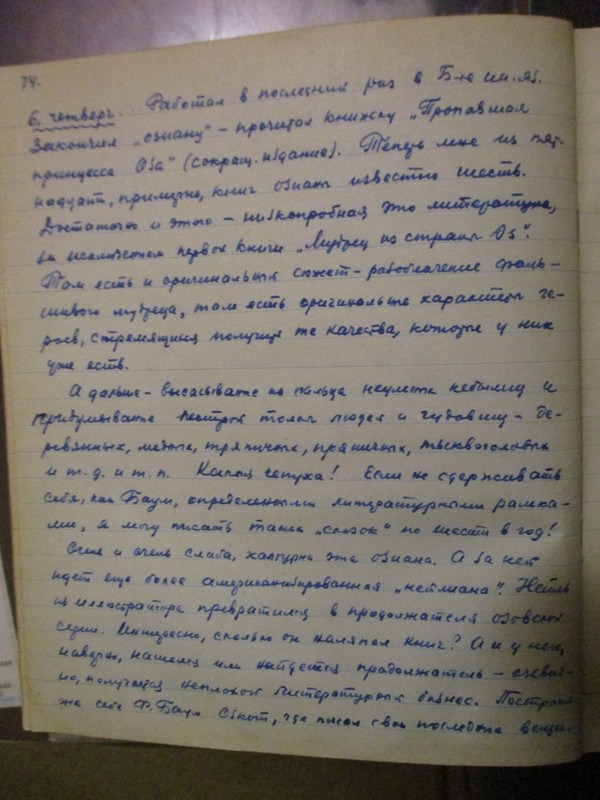 74.
6. четверг. Работал в последний раз в Б-ке ин. яз.
Закончил „озиану" – прочитал книжку „Пропавшая
принцесса Оза" (сокращ. издание). Теперь мне из пят-
надцати, примерно, книг озианы известно шесть.
Достаточно и этого – низкопробная это литература,
за исключением первой книги „Мудрец из страны Оз".
Там есть и оригинальный сюжет – разоблачение фаль-
шивого мудреца, там есть оригинальные характеры ге-
роев, стремящихся получить те качества, которые у них
уже есть.
А дальше – высасывание из пальца нелепых небылиц и
придумывание пестрой толпы людей и чудовищ – де-
ревянных, медных, тряпичных, пряничных, тыквоголовых
и т. д. и т. п. Какая чепуха! Если не сдерживать
себя, как Баум, определенными литературными рамка-
ми, я могу писать таких „сказок" по шести в год!
Очень и очень слаба, халтурна эта озиана. А за ней
идет еще более американизированная „нейлиана". Нейль
из иллюстратора превратился в продолжателя озовской
серии. Интересно, сколько он наляпал книг? А и у него,
наверно, нашелся или найдется продолжатель – очевид-
но, получается неплохой литературный бизнес. Построил
же себе Ф. Баум Озкот, где писал свои последние вещи.